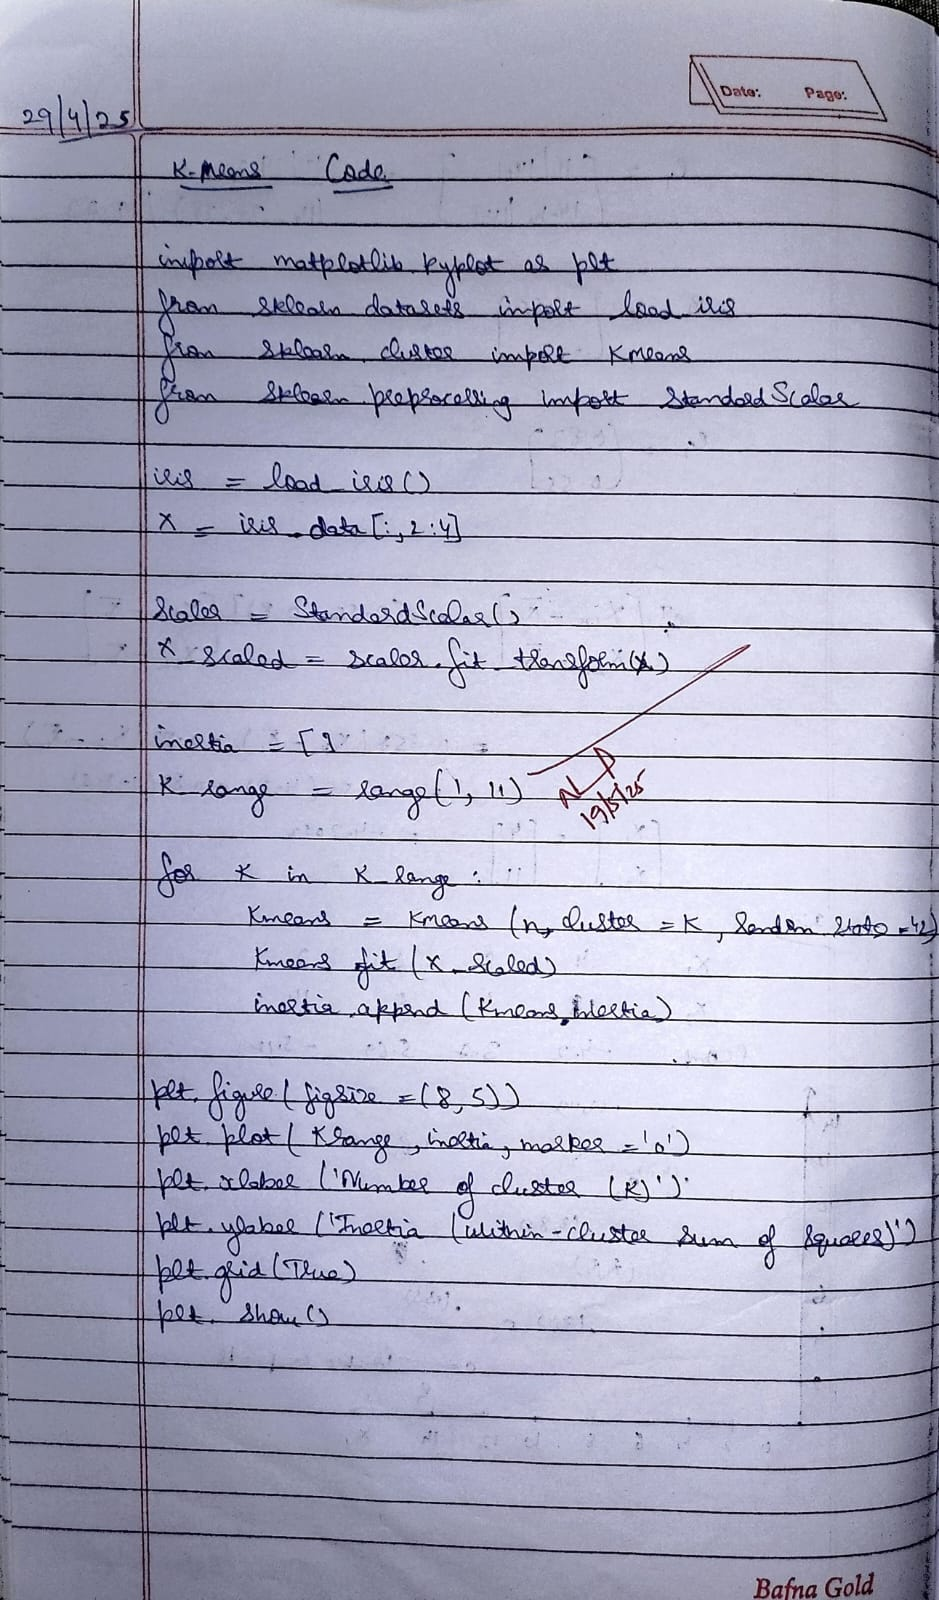 Date: Page:
29/4/25
K-Means Code
import matplotlib. pyplot as plt
from sklearn datasets import load_iris
from sklearn. cluster import KMeans
from sklearn. preprocessing import StandardScalar
iris = load_iris()
X = iris.data[:, 2:4]
Scaler = StandardScalar()
X_scaled = scaler.fit_transform(X)
inertia = []
K_range = range(1, 11)
19/5/25
for K in K_range :
Kmeans = Kmeans (n_cluster = K, random state = 42)
Kmeans fit (X_Scaled)
inertia.append (Kmeans.inertia)
plt. figure( figsize = (8, 5))
plt. plot( K range, inertia, marker = 'o')
plt. xlabel ('Number of cluster (K)')
plt. ylabel ('Inertia (within-cluster sum of squares)')
plt. grid(True)
plt. show()
Bafna Gold